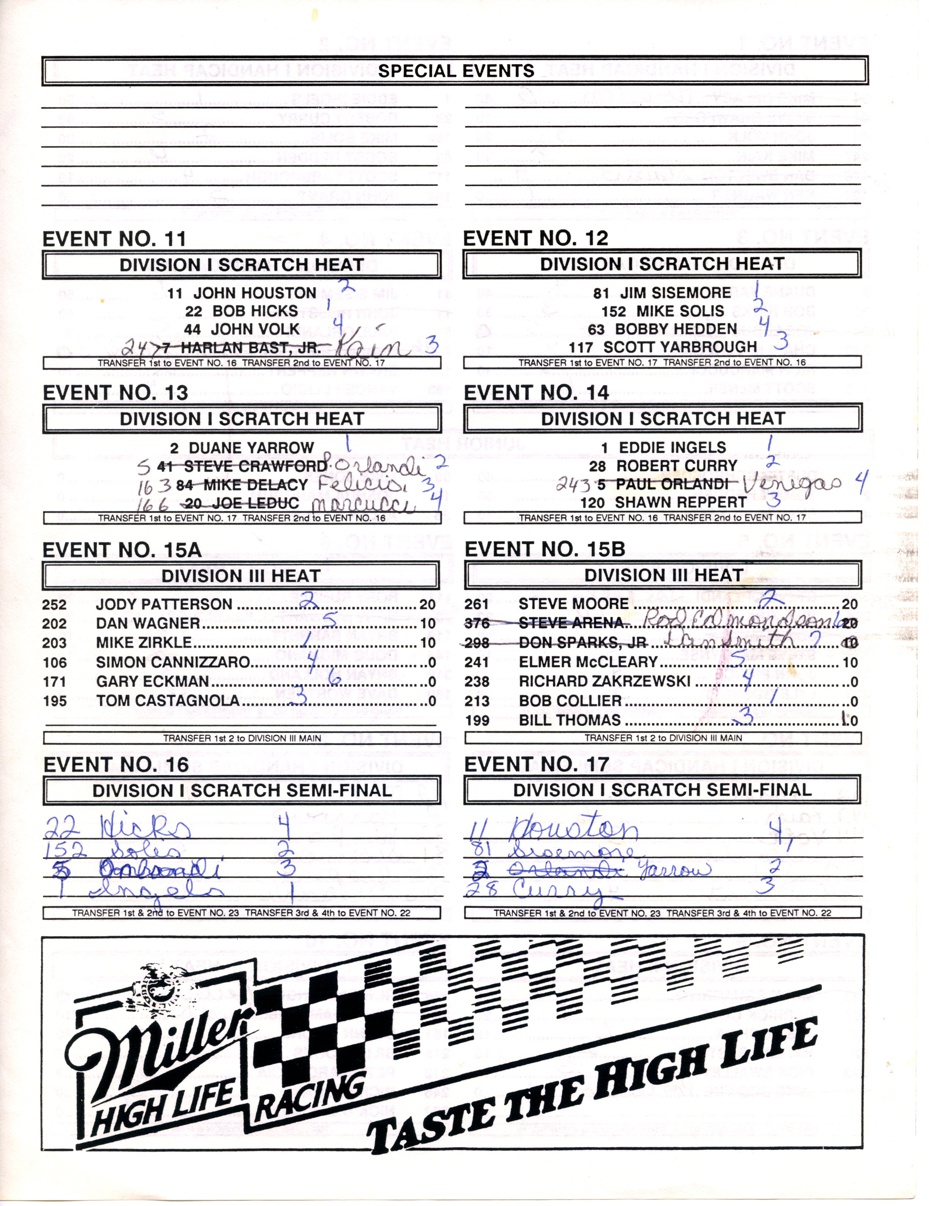 SPECIAL EVENTS
EVENT NO. 11
DIVISION I SCRATCH HEAT
11 JOHN HOUSTON 2
22 BOB HICKS 1
44 JOHN VOLK 4
247 7 HARLAN BAST, JR. Kain 3
TRANSFER 1st to EVENT NO. 16 TRANSFER 2nd to EVENT NO. 17
EVENT NO. 12
DIVISION I SCRATCH HEAT
81 JIM SISEMORE 1
152 MIKE SOLIS 2
63 BOBBY HEDDEN 4
117 SCOTT YARBROUGH 3
TRANSFER 1st to EVENT NO. 17 TRANSFER 2nd to EVENT NO. 16
EVENT NO. 13
DIVISION I SCRATCH HEAT
2 DUANE YARROW 1
5 41 STEVE CRAWFORD P. Orlandi 2
163 84 MIKE DELACY Felicis, 3
166 20 JOE LEDUC Marcucci 4
TRANSFER 1st to EVENT NO. 17 TRANSFER 2nd to EVENT NO. 16
EVENT NO. 14
DIVISION I SCRATCH HEAT
1 EDDIE INGELS 1
28 ROBERT CURRY 2
243 5 PAUL ORLANDI Venigas 4
120 SHAWN REPPERT 3
TRANSFER 1st to EVENT NO. 16 TRANSFER 2nd to EVENT NO. 17
EVENT NO. 15A
DIVISION III HEAT
252 JODY PATTERSON 2 20
202 DAN WAGNER 5 10
203 MIKE ZIRKLE 1 10
106 SIMON CANNIZZARO 4 0
171 GARY ECKMAN 6 0
195 TOM CASTAGNOLA 3 0
TRANSFER 1st 2 to DIVISION III MAIN
EVENT NO. 15B
DIVISION III HEAT
261 STEVE MOORE 2 20
376 STEVE ARENA Rod Edmondson 6 20
298 DON SPARKS, JR Dan Smith 7
241 ELMER McCLEARY 5 10
238 RICHARD ZAKRZEWSKI 4 0
213 BOB COLLIER 1 0
199 BILL THOMAS 3 10
TRANSFER 1st 2 to DIVISION III MAIN
EVENT NO. 16
DIVISION I SCRATCH SEMI-FINAL
22 Hicks 4
152 Solis 2
5 Orlandi 3
1 Ingels 1
TRANSFER 1st & 2nd to EVENT NO. 23 TRANSFER 3rd & 4th to EVENT NO. 22
EVENT NO. 17
DIVISION I SCRATCH SEMI-FINAL
11 Houston 4
81 Sisemore 1
2 Orlandi Yarrow 2
28 Curry 3
TRANSFER 1st & 2nd to EVENT NO. 23 TRANSFER 3rd & 4th to EVENT NO. 22
Miller
HIGH LIFE
RACING
TASTE THE HIGH LIFE